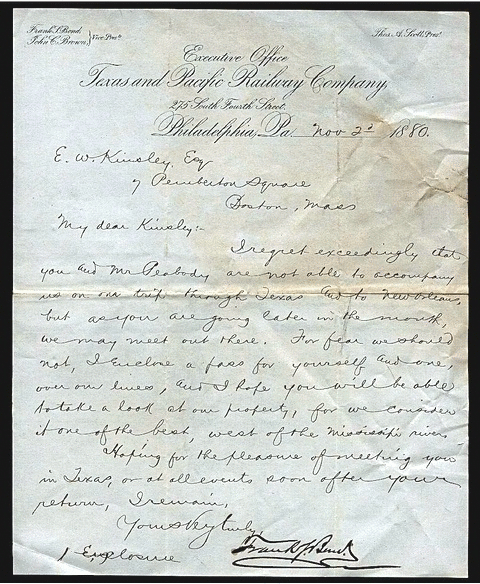 Frank S. Bond,
John C. Brown, } Vice Prests
Thos. A. Scott, Prest
Executive Office
Texas and Pacific Railway Company,
275 South Fourth Street.
Philadelphia, Pa. Nov 2d 1880.
E. W. Kinsley, Esq
7 Pemberton Square
Boston, Mass
My dear Kinsley:-
I regret exceedingly that
you and Mr Peabody are not able to accompany
us on our trip through Texas and to New Orleans,
but as you are going later in the month,
we may meet out there. For fear we should
not, I enclose a pass for yourself and one,
over our lines, and I hope you will be able
to take a look at our property, for we consider
it one of the best, west of the Mississippi river.
Hoping for the pleasure of meeting you
in Texas, or at all events soon after your
return, I remain,
Yours Very truly,
Frank S. Bond
1 Enclosure